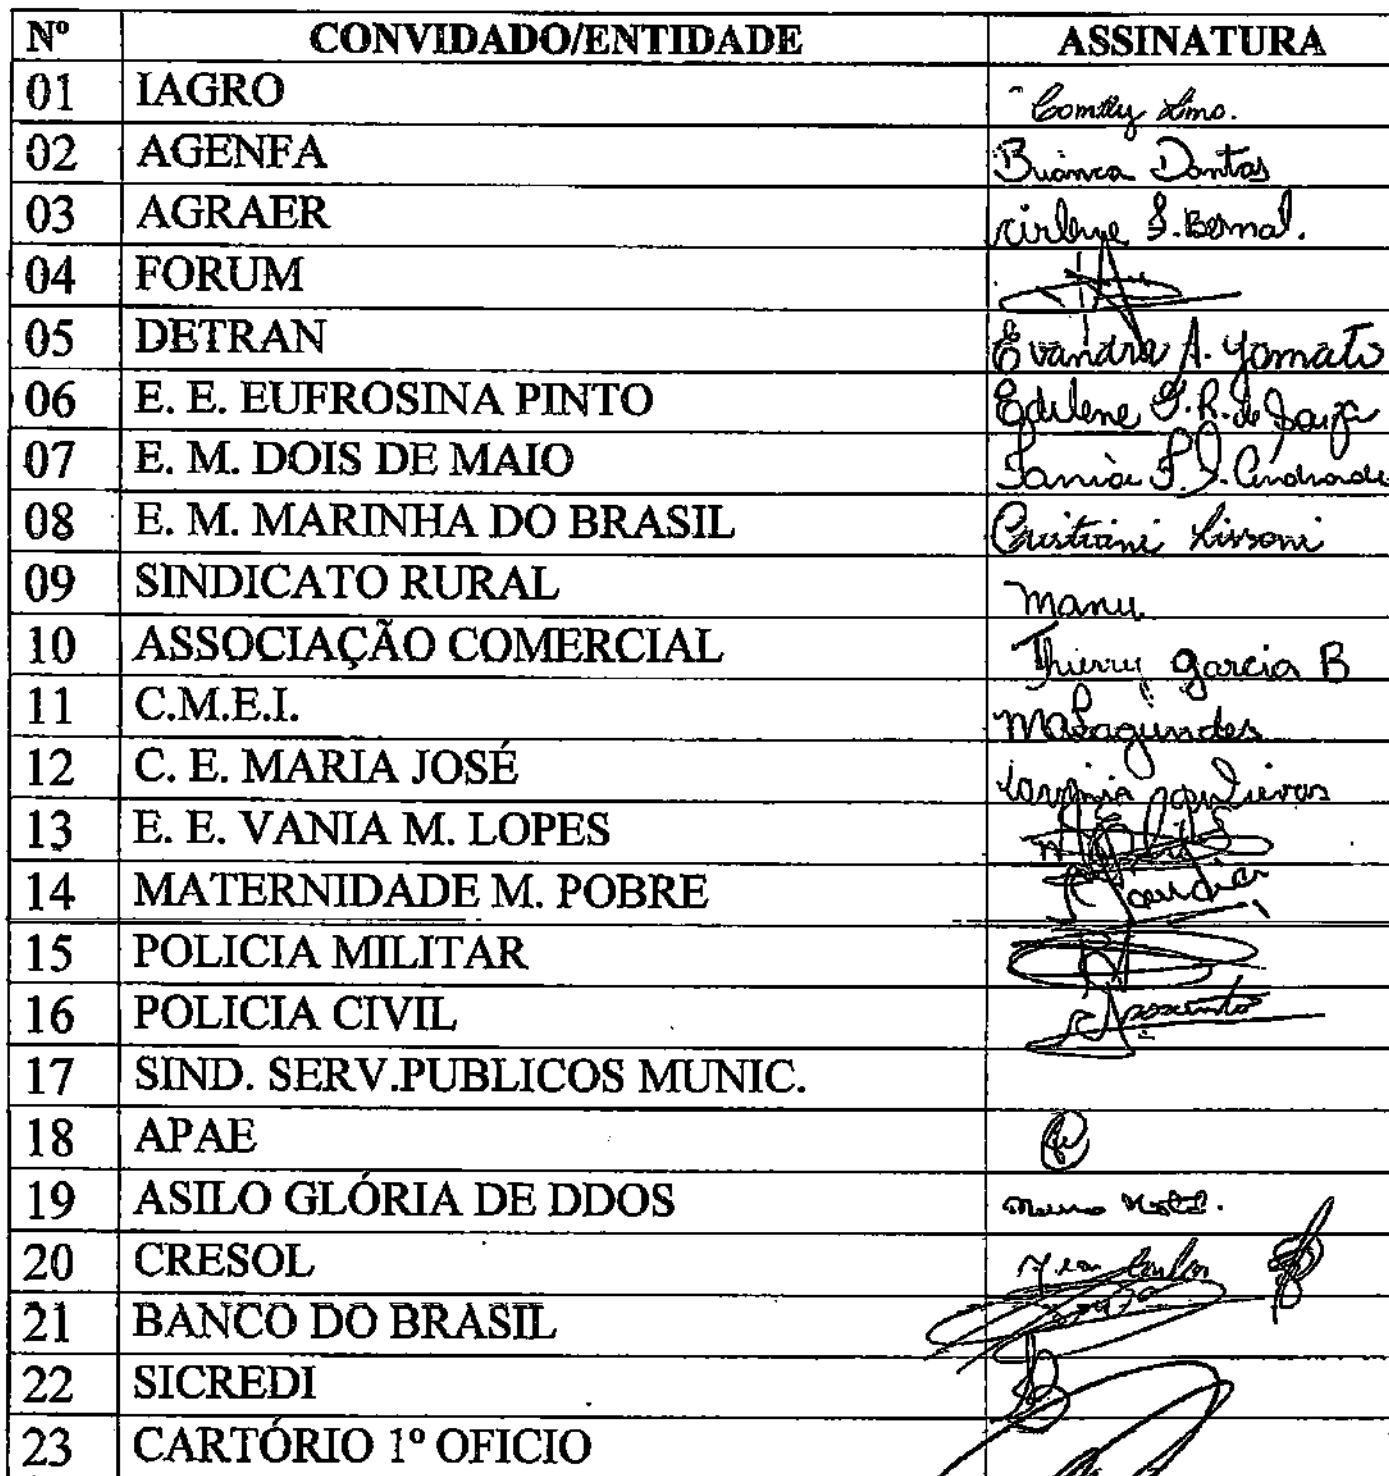 Nº CONVIDADO/ENTIDADE ASSINATURA
01 IAGRO
02 AGENFA Brianca Dantas
03 AGRAER S. Bernal.
04 FORUM
05 DETRAN Evandra A. Yamato
06 E. E. EUFROSINA PINTO Edilene de
07 E. M. DOIS DE MAIO Andrade
08 E. M. MARINHA DO BRASIL Cristiani Lissoni
09 SINDICATO RURAL Manu
10 ASSOCIAÇÃO COMERCIAL Thierry Garcia B
11 C.M.E.I. MaFagundes
12 C. E. MARIA JOSÉ
13 E. E. VANIA M. LOPES
14 MATERNIDADE M. POBRE
15 POLICIA MILITAR
16 POLICIA CIVIL
17 SIND. SERV.PUBLICOS MUNIC.
18 APAE
19 ASILO GLÓRIA DE DDOS
20 CRESOL
21 BANCO DO BRASIL
22 SICREDI
23 CARTÓRIO 1º OFICIO